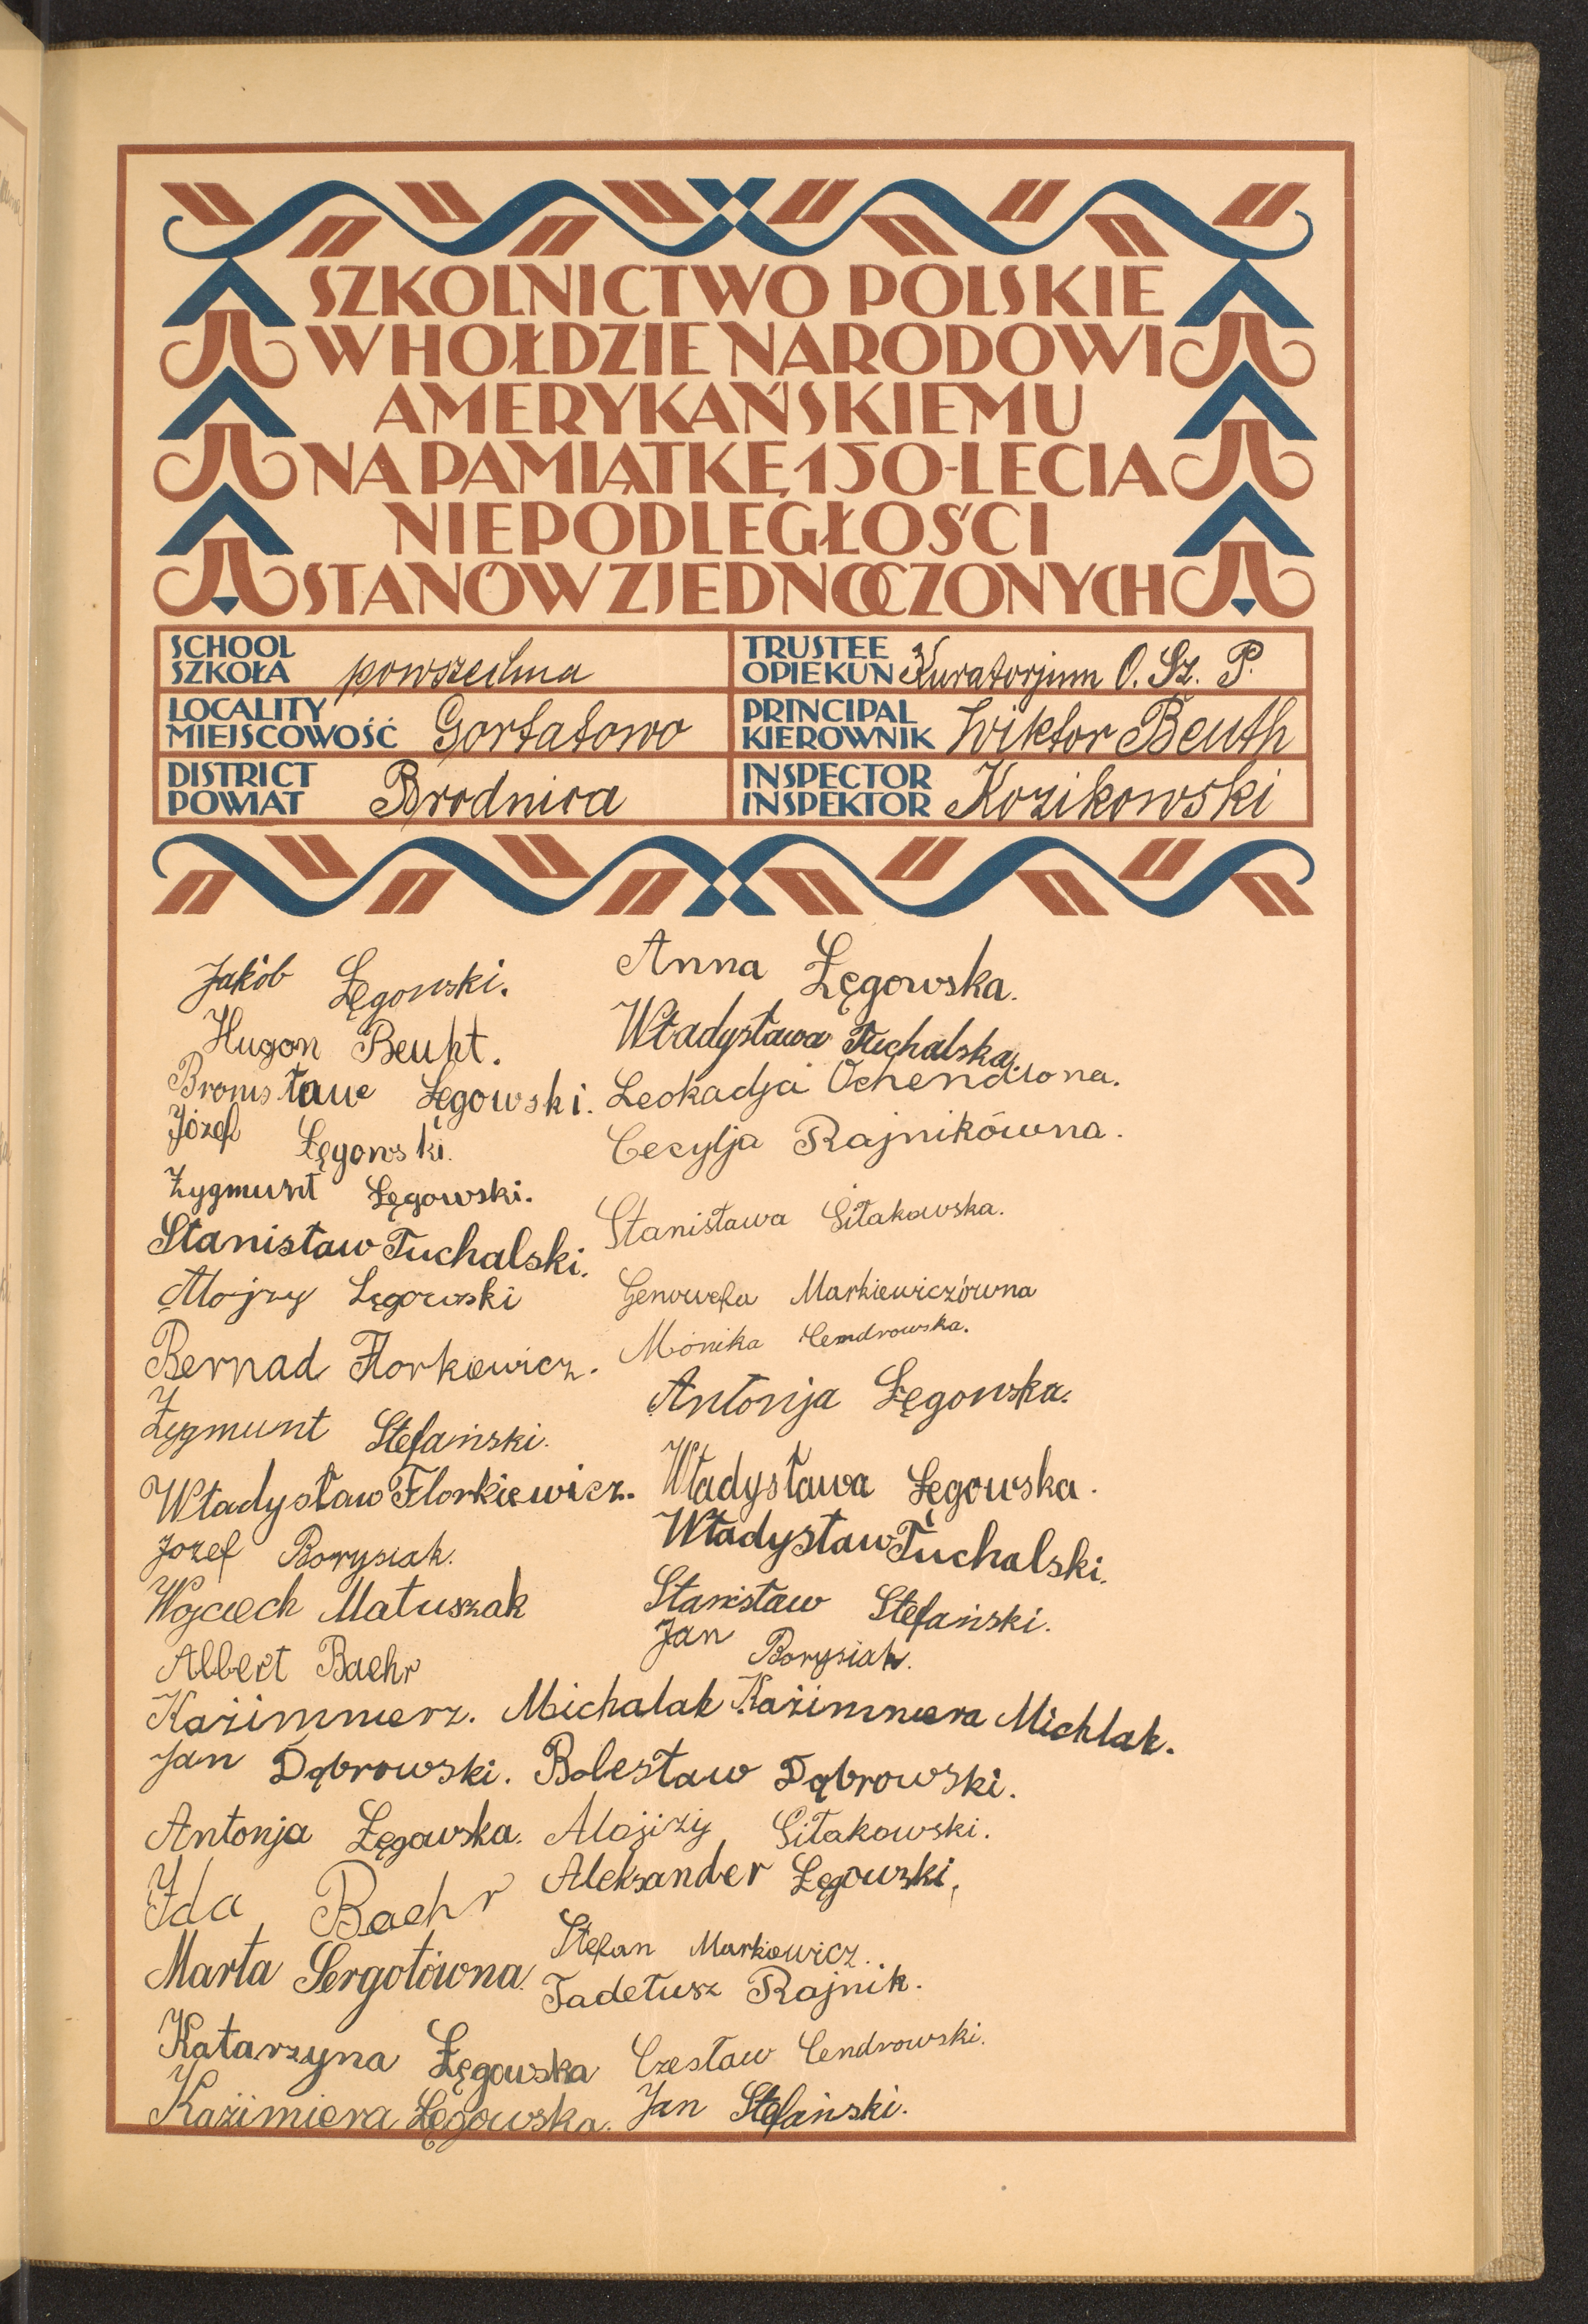 SZKOLNICTWO POLSKIE
W HOŁDZIE NARODOWI
AMERYKAŃSKIEMU
NA PAMIĄTKĘ 150-LECIA
NIEPODLEGŁOŚCI
STANÓW ZJEDNOCZONYCH
SCHOOL
SZKOŁA powszechna
TRUSTEE
OPIEKUN Kuratorjum O. Sz. P.
LOCALITY
MIEJSCOWOŚĆ Gortatowo
PRINCIPAL
KIEROWNIK Wiktor Beuth
DISTRICT
POWIAT Brodnica
INSPECTOR
INSPEKTOR Kozikowski
Jakób Łęgowski.
Hugon Beuht.
Bronisławe Łęgowski.
Józef Łęgowski.
Zygmunt Łęgowski.
Stanisław Tuchalski.
Alojzy Łęgowski
Bernad Florkiewicz.
Zygmunt Stefański.
Władysław Florkiewicz.
Jozef Borysiak.
Wojciech Matuszak
Albert Baehr
Kaźimmierz. Michalak
Jan Dąbrowski.
Antonja Łęgowska.
Ida Baehr
Marta Sergotówna.
Katarzyna Łęgowska
Kaźimiera Łęgowska.
Anna Łęgowska.
Władysława Tuchalska.
Leokadja
Cecylja Rajnikówna.
Stanisława Sitakowska.
Genowefa Markiewiczówna
Monika Cendrowska.
Antonja Łęgowska.
Władysława Łęgowska.
Władysław Tuchalski.
Stanisław Stefański.
Jan Borysiak.
Kaźimmiera Michlak.
Bolesław Dąbrowski.
Alojizy Sitakowski.
Aleksander Łęgowski,
Stefan Markiewicz.
Tadeusz Rajnik.
Czesław Cendrowski.
Jan Stefański.